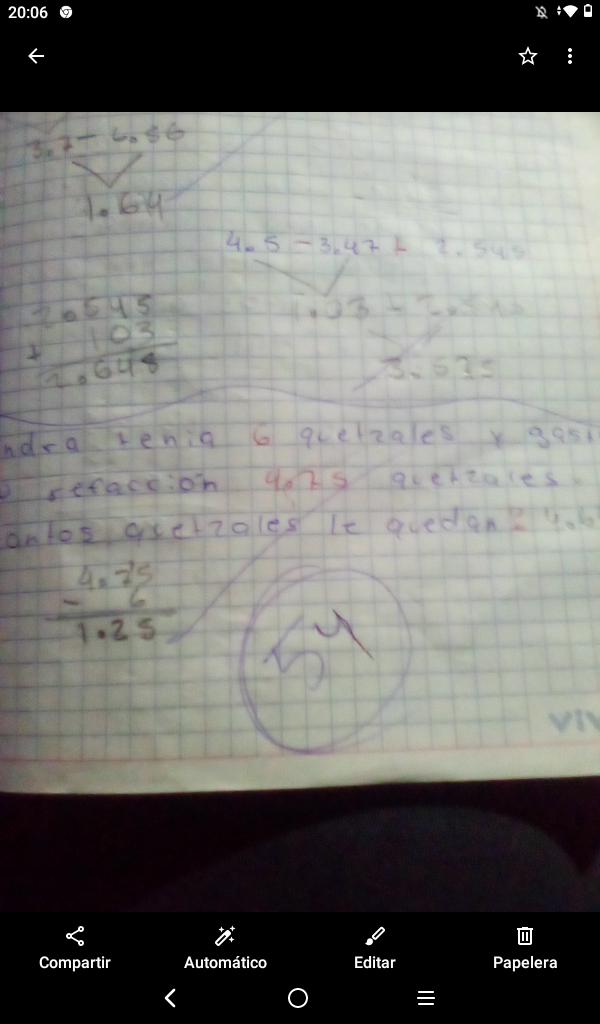 20:06
3.7 -
1.64
4.5 - 3.47 +
2.545
+ 103
2.648
3.575
ndra tenia 6 quetzales y gas
refacción 4.75 quetzales.
antos quetzales le quedan
4.75
- 6
1.25
54
VIV
Compartir Automático Editar Papelera